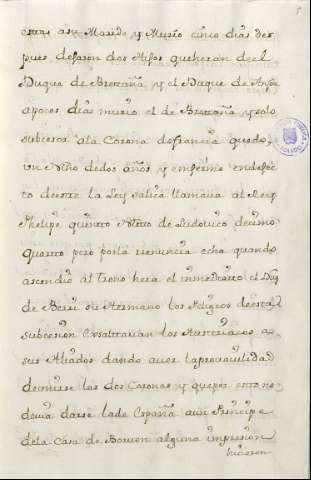 estas a su Marido y Murio cinco dias des
pues, dejaron dos Hijos que heran de el
Duque de Brettaña, y el Duque de Anju
a pocos dias murio el de Brettaña, y solo
subcesor a la Corona de francia quedo,
un Niño de dos años y enfermo en defec
to de este la Ley salica llamava al Rey
Phelipe quintto Nietto de Ludovico decimo
quartto pero por la renuncia echa quando
ascendio al trono hera el inmediatto el Duq
de Berri su Hermano los Peligros de esta
subcesion Exsaltavan los Austriacos a
sus Aliados dando a ver la provavilidad
de unirse las dos Coronas y que por esta no
devia darse la de España a un Principe
de la Casa de Borvon alguna impresion
hicieron